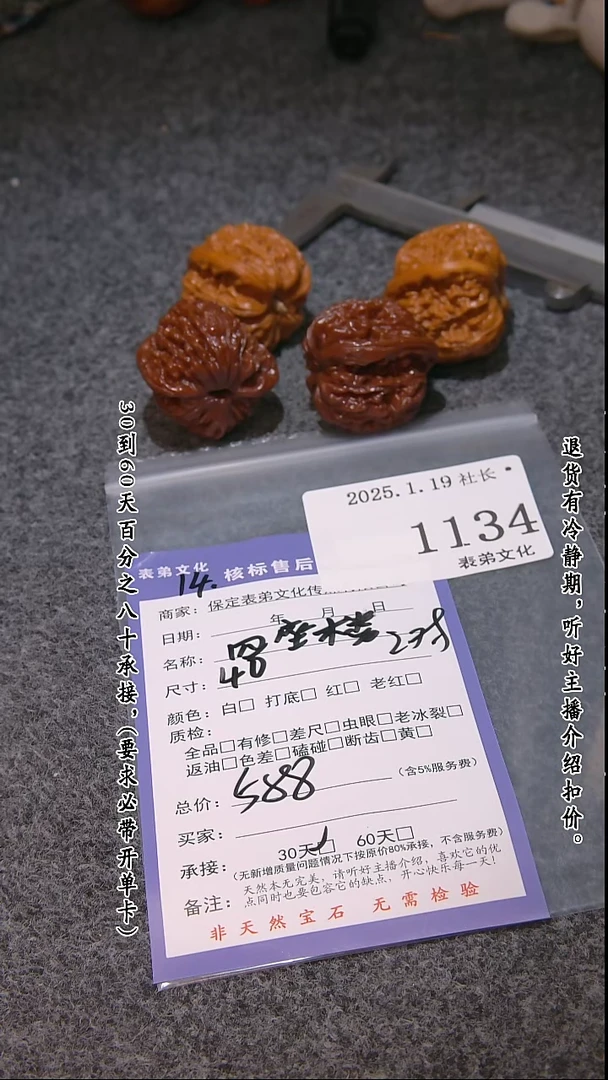 30到60天百分之八十承接，（要求必带开单卡）
退货有冷静期，听好主播介绍扣价。
2025.1.19 社长
1134
表弟文化
表弟文化
14.
核标售后
商家：保定表弟文化传
日期： 年 月 日
名称：四座楼 2对
尺寸：48
颜色：白□ 打底□ 红□ 老红□
质检：
全品□有修□差尺□虫眼□老冰裂□
返油□色差□磕碰□断齿□黄□
总价：588 （含5%服务费）
买家：
承接：30天□ 60天□
（无新增质量问题情况下按原价80%承接，不含服务费）
备注：天然本无完美，请听好主播介绍，喜欢它的优
点同时也要包容它的缺点。开心快乐每一天！
非天然宝石 无需检验